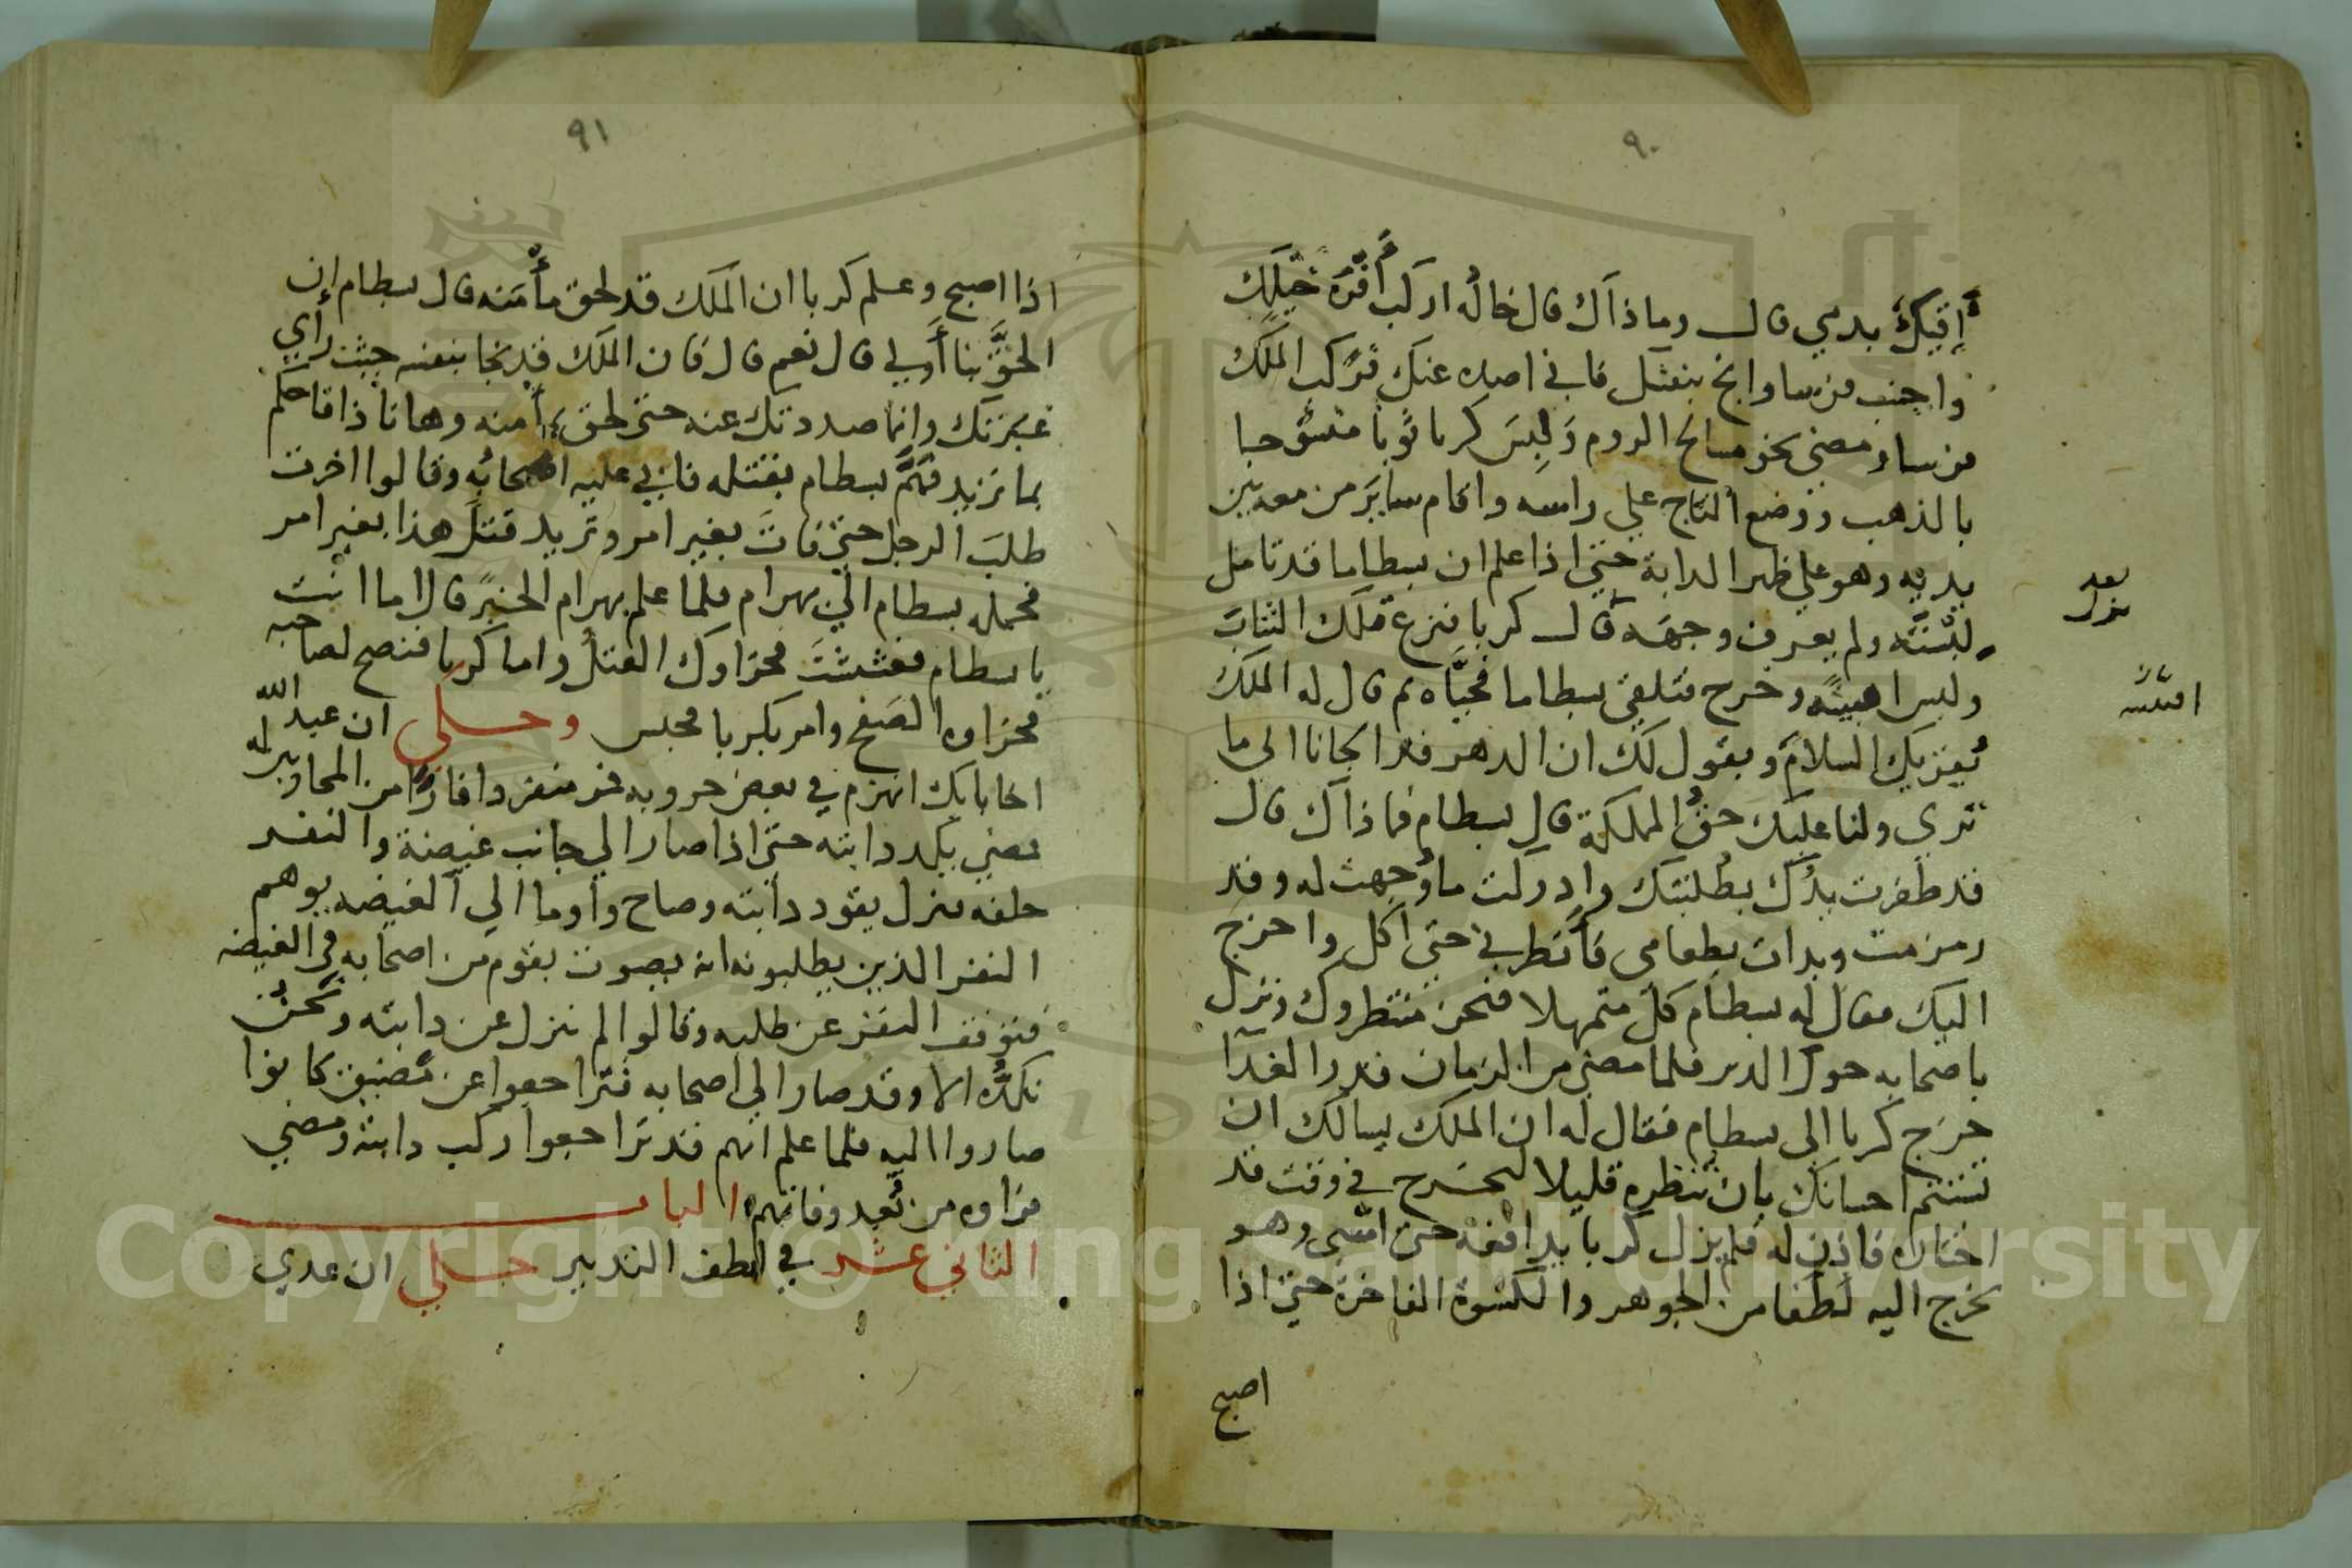 ٩٠
أقيك بدمي قال وما ذاك قال خاله اركب أفره خيلك
واجنب فرسا وانج بنفسك فاني اصده عنك فركب الملك
فرسا ومضى نحو مسالح الروم ولبس كربا ثوبا منسوجا
بالذهب ووضع التاج علي راسه واقام ساير من معه بين
يديه وهو علي ظهر الدابة حتى اذا علم ان بسطاما قد تامل
لبسته ولم يعرف وجهه قال كربا فنزع تلك الثياب
ولبس اهبته وخرج فتلقى بسطاما فحياه ثم قال له الملك
يقريك السلام ويقول لك ان الدهر قد الجانا الى ما
تري ولنا عليك حق المملكة قال بسطام فما ذاك قال
قد ظفرت يدك بطلبتك وادركت ما وجهت له وقد
زمزمت وبدات بطعامي فأنظرني حتى اكل واخرج
اليك فقال له بسطام كل متمهلا فنحن منتظروك ونزل
باصحابه حول الدير فلما مضى من الزمان قدر الغدآ
خرج كربا الى بسطام فقال له ان الملك يسالك ان
تستتم احسانك بان تنظره قليلا ليخرج في وقت قد
اختاره فاذن له فلم يزل كربا يدافعه حتى امسى وهو
يخرج اليه لطفا من الجوهر والكسوة الفاخرة حتى اذا
اصبح
بعد
نزل
اقبيته
٩١
اذا اصبح وعلم كربا ان الملك قد لحق مأمنه قال بسطام ان
الحق بنا أولي قال نعم قال فان الملك قد نجا بنفسه حيث رأي
غيرتك وانما صددتك عنه حتى لحق مأمنه وها نا ذا فاحكم
بما تريد فهم بسطام بقتله فابي عليه اصحابه وقالوا اخرت
طلب الرجل حتى فات بغير امر وتريد قتل هذا بغير امر
فحمله بسطام الى بهرام فلما علم بهرام الخبر قال اما انت
يا بسطام فغششت فجزاوك القتل واما كربا فنصح لصاحبه
فجزاوه الصفح وامر بكربا فحبس وحكي ان عبد الله
اخا بابك انهزم في بعض حروبه فر منفردا فازا من المحاربين له
فمضى يكد دابته حتى اذا صار الي جانب غيضة والنفر
خلفه نزل يقود دابته وصاح وأوما الي الغيضه يوهم
النفر الذين يطلبونه انه يصوت بقوم من اصحابه في الغيضه
فتوقف النفر عن طلبه وقالوا لم ينزل عن دابته ونحن
نكده الا وقد صار الي اصحابه فتراجعوا عن مضيق كانوا
صاروا اليه فلما علم انهم قد تراجعوا ركب دابته ومضي
فراوه من بعيد وفاتهم الباب
الثاني عشر في لطف التدبير حكي ان عدي